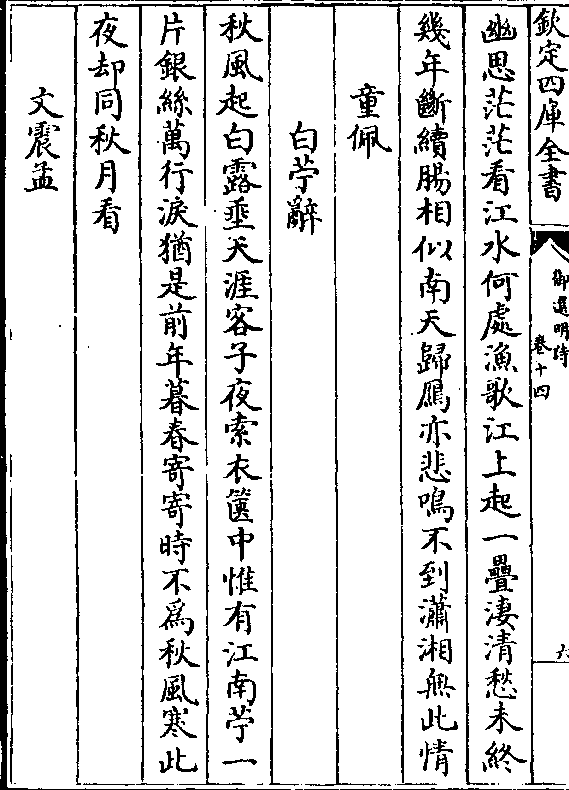 欽定四庫全書
御選明詩
卷十四
六
幽思茫茫看江水何處漁歌江上起一疊淒清愁未終
幾年斷續腸相似南天歸鴈亦悲鳴不到瀟湘無此情
童佩
白苧辭
秋風起白露垂天涯客子夜索衣篋中惟有江南苧一
片銀絲萬行淚猶是前年暮春寄寄時不為秋風寒此
夜却同秋月看
文震孟